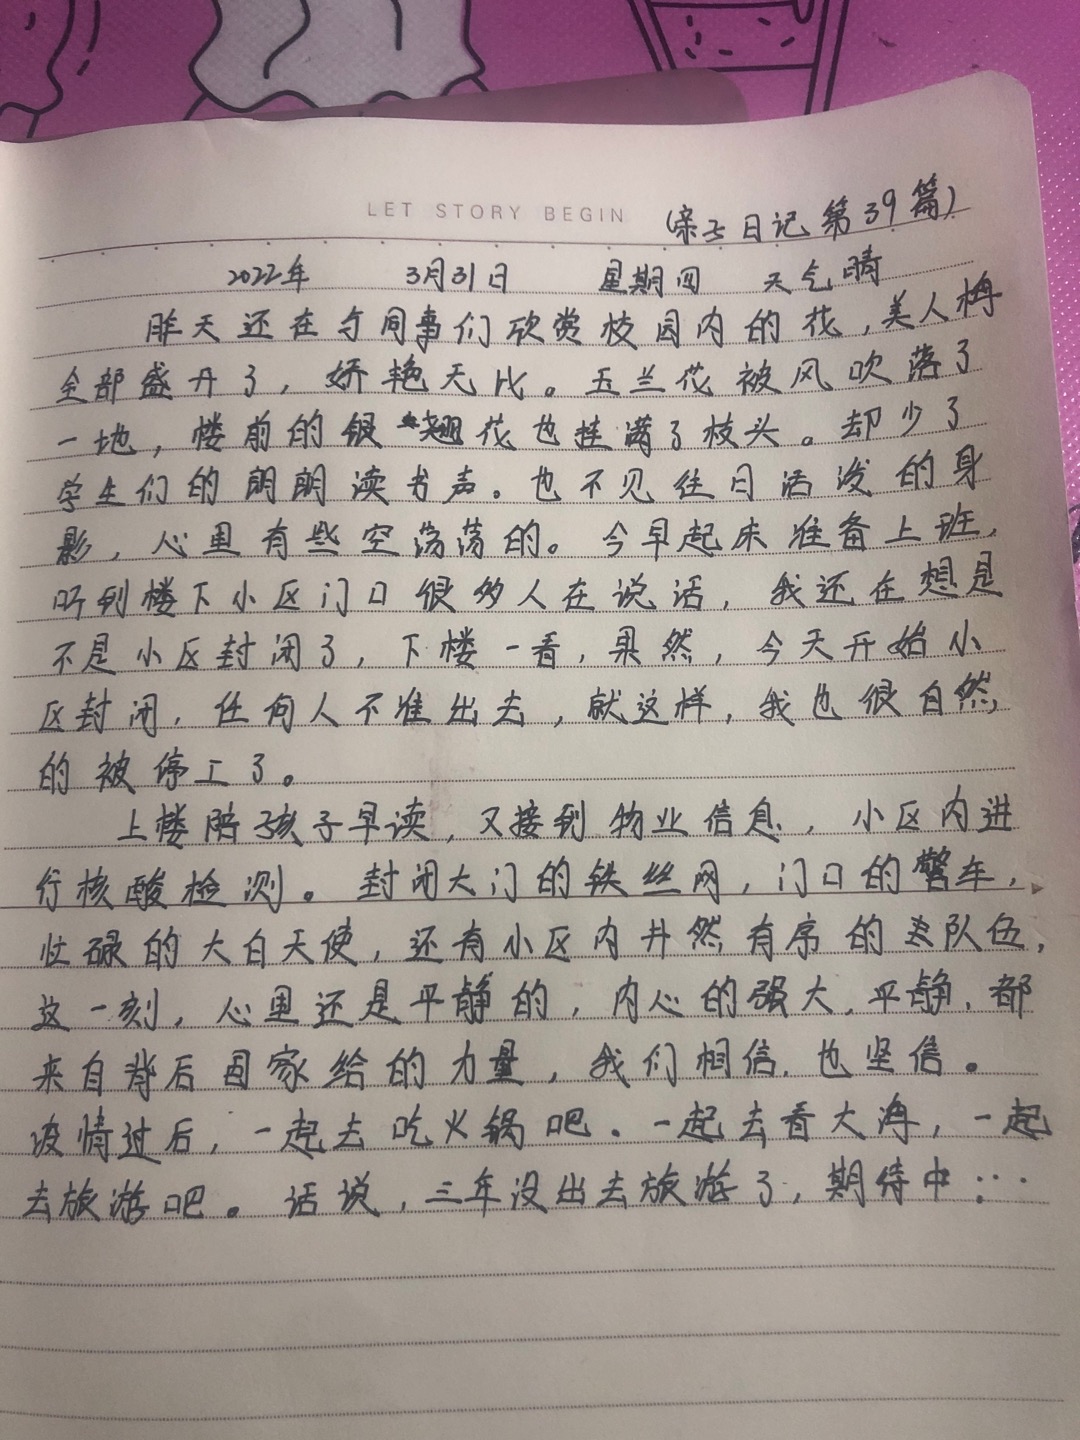 LET STORY BEGIN
(亲子日记第39篇)
2022年 3月31日 星期四 天气晴
昨天还在与同事们欣赏校园内的花,美人梅
全部盛开了,娇艳无比。玉兰花被风吹落了
一地,楼前的银翘花也挂满了枝头。却少了
学生们的朗朗读书声。也不见往日活泼的身
影,心里有些空荡荡的。今早起床准备上班,
听到楼下小区门口很多人在说话,我还在想是
不是小区封闭了,下楼一看,果然,今天开始小
区封闭,任何人不准出去,就这样,我也很自然
的被停工了。
上楼陪孩子早读,又接到物业信息,小区内进
行核酸检测。封闭大门的铁丝网,门口的警车,
忙碌的大白天使,还有小区内井然有序的队伍,
这一刻,心里还是平静的,内心的强大,平静,都
来自背后国家给的力量,我们相信,也坚信。
疫情过后,一起去吃火锅吧。一起去看大海,一起
去旅游吧。话说,三年没出去旅游了,期待中…